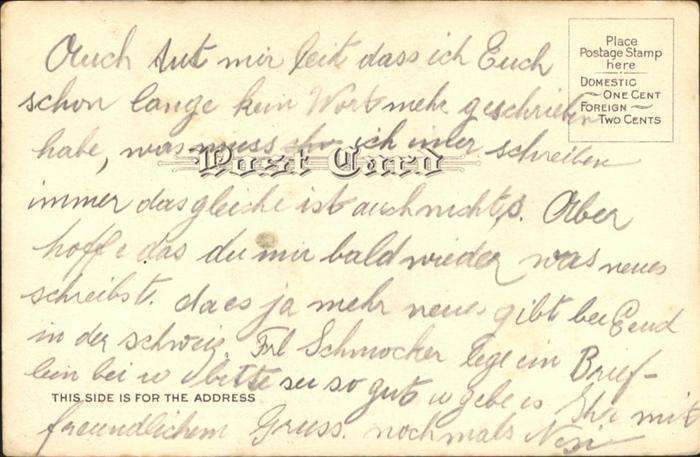 Auch tut mir leit dass ich Euch
schon lange kein Wort mehr geschrieben
habe, was muss ich imer schreiben
immer das gleiche ist auch nichts. Aber
hoffe das du mir bald wieder was neues
schreibst. da es ja mehr neues gibt bei Eeud
in der schweiz. Frl Schmocker lege ein Brief-
lein bei u bitte sei so gut u gebe es Ihr mit
freundlichem Gruss. nochmals
Place
Postage Stamp
here
DOMESTIC
ONE CENT
FOREIGN
TWO CENTS
Post Card
THIS SIDE IS FOR THE ADDRESS